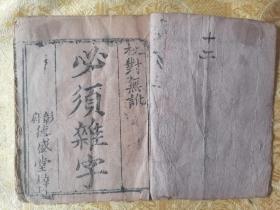 校對無訛
必須雜字
彰府德盛堂梓
十二